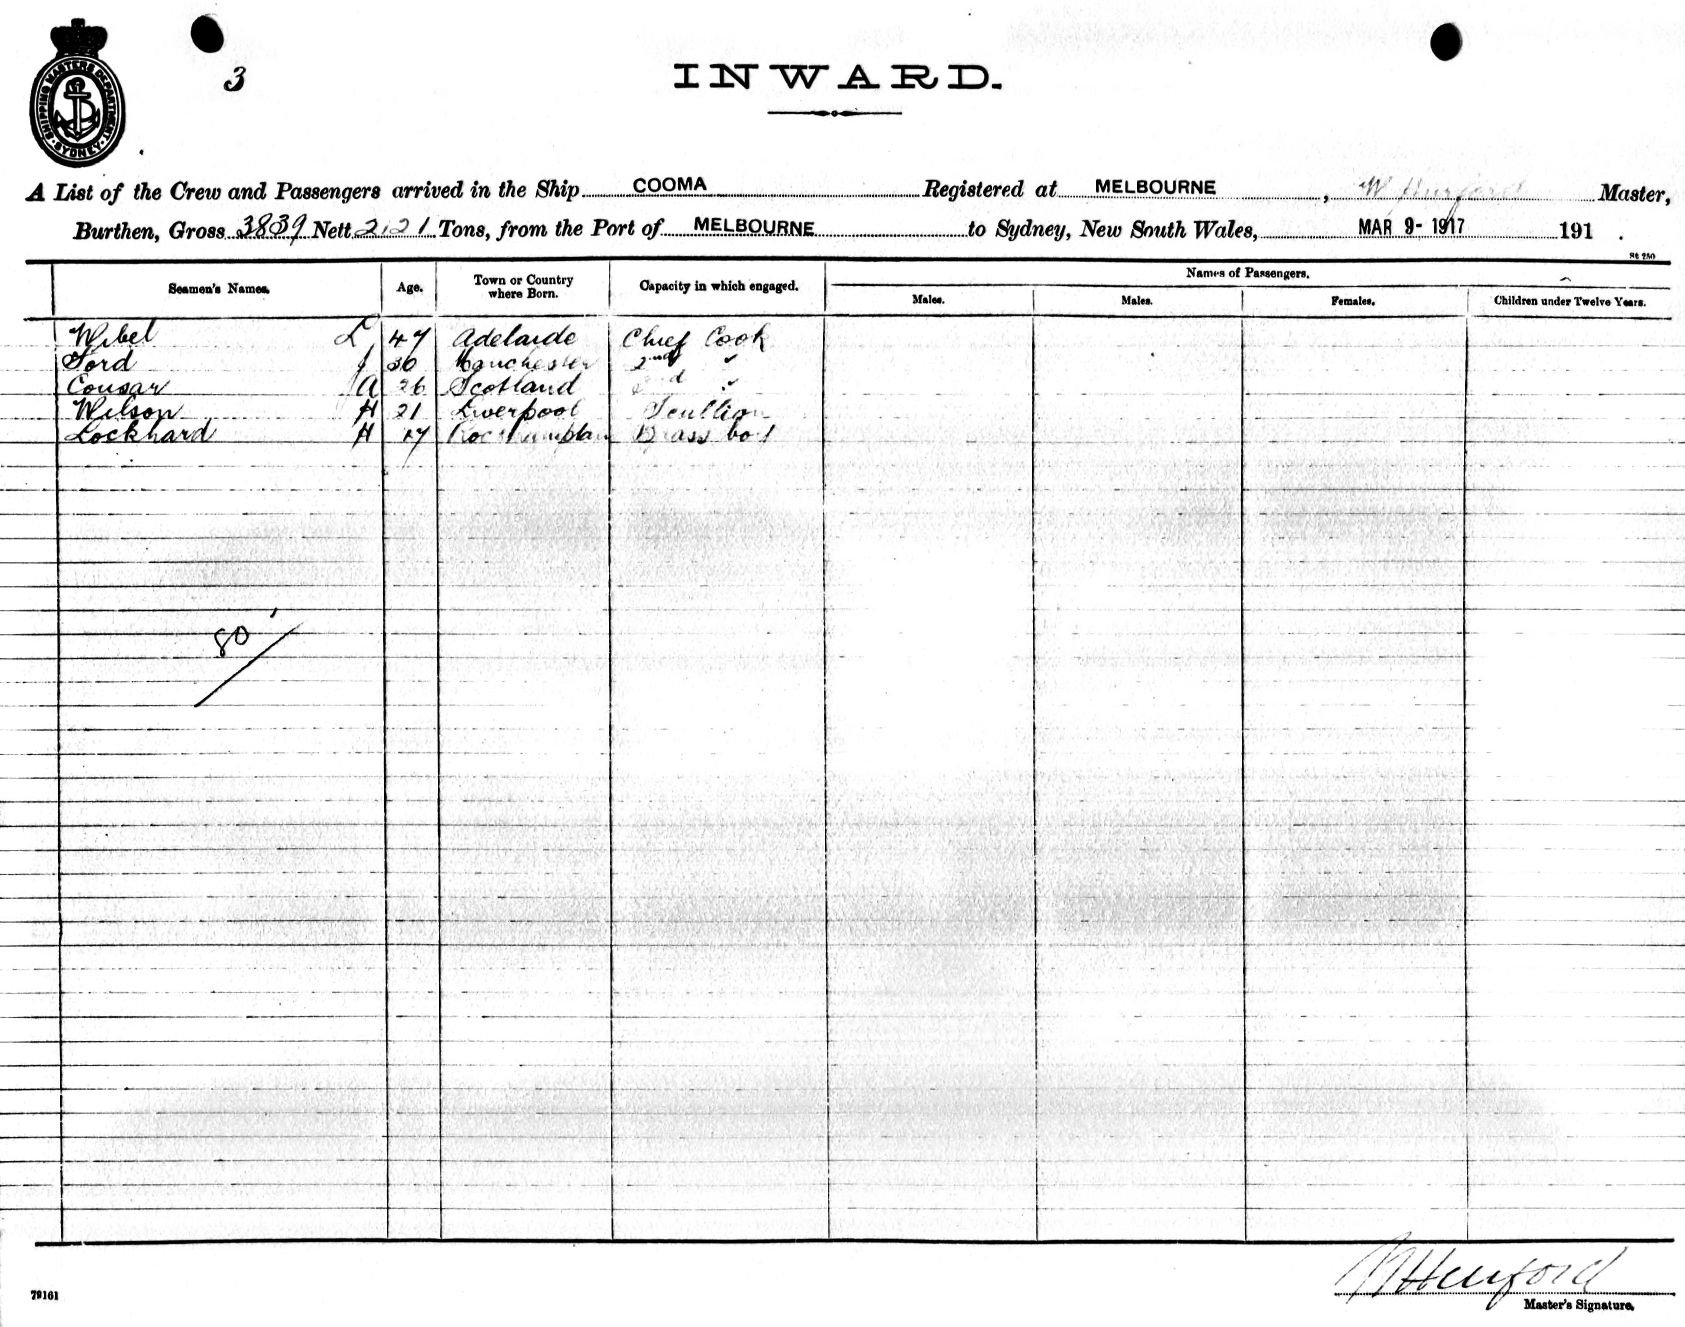 SHIPPING MASTERS DEPARTMENT
SYDNEY
3
INWARD.
A List of the Crew and Passengers arrived in the Ship COOMA Registered at MELBOURNE, W Hurford Master,
Burthen, Gross 3839 Nett 2121 Tons, from the Port of MELBOURNE to Sydney, New South Wales, MAR 9- 1917 191 .
St 250
Seamen's Names. Age. Town or Country where Born. Capacity in which engaged. Names of Passengers.
Males. Males. Females. Children under Twelve Years.
Wibel L 47 Adelaide Chief Cook
Ford J 30 Manchester 2nd "
Cousar A 26 Scotland 3rd "
Wilson H 21 Liverpool Scullion
Lockhard H 17 Brass boy
80
W Hurford
79161
Master's Signature.